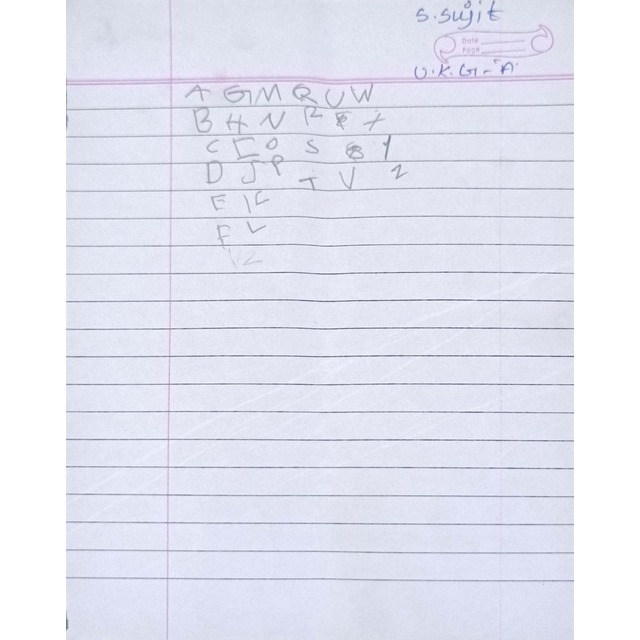 S. Sujit
Date
Page
U.K.G - "A".
A G M Q U W
B H N R X
C I O S Y
D J P T V Z
E K
F L